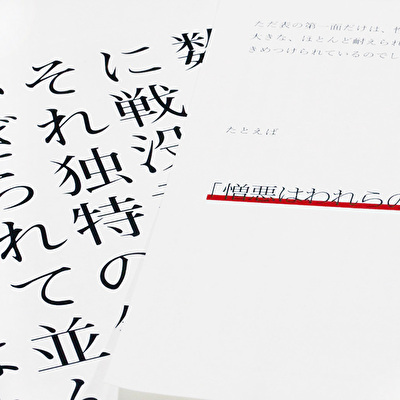 数
に戦没
それ独特の
れて並
ただ表の第一面だけは、
大きな、ほとんど耐えられ
きめつけられているのでし
たとえば
「憎悪はわれらの